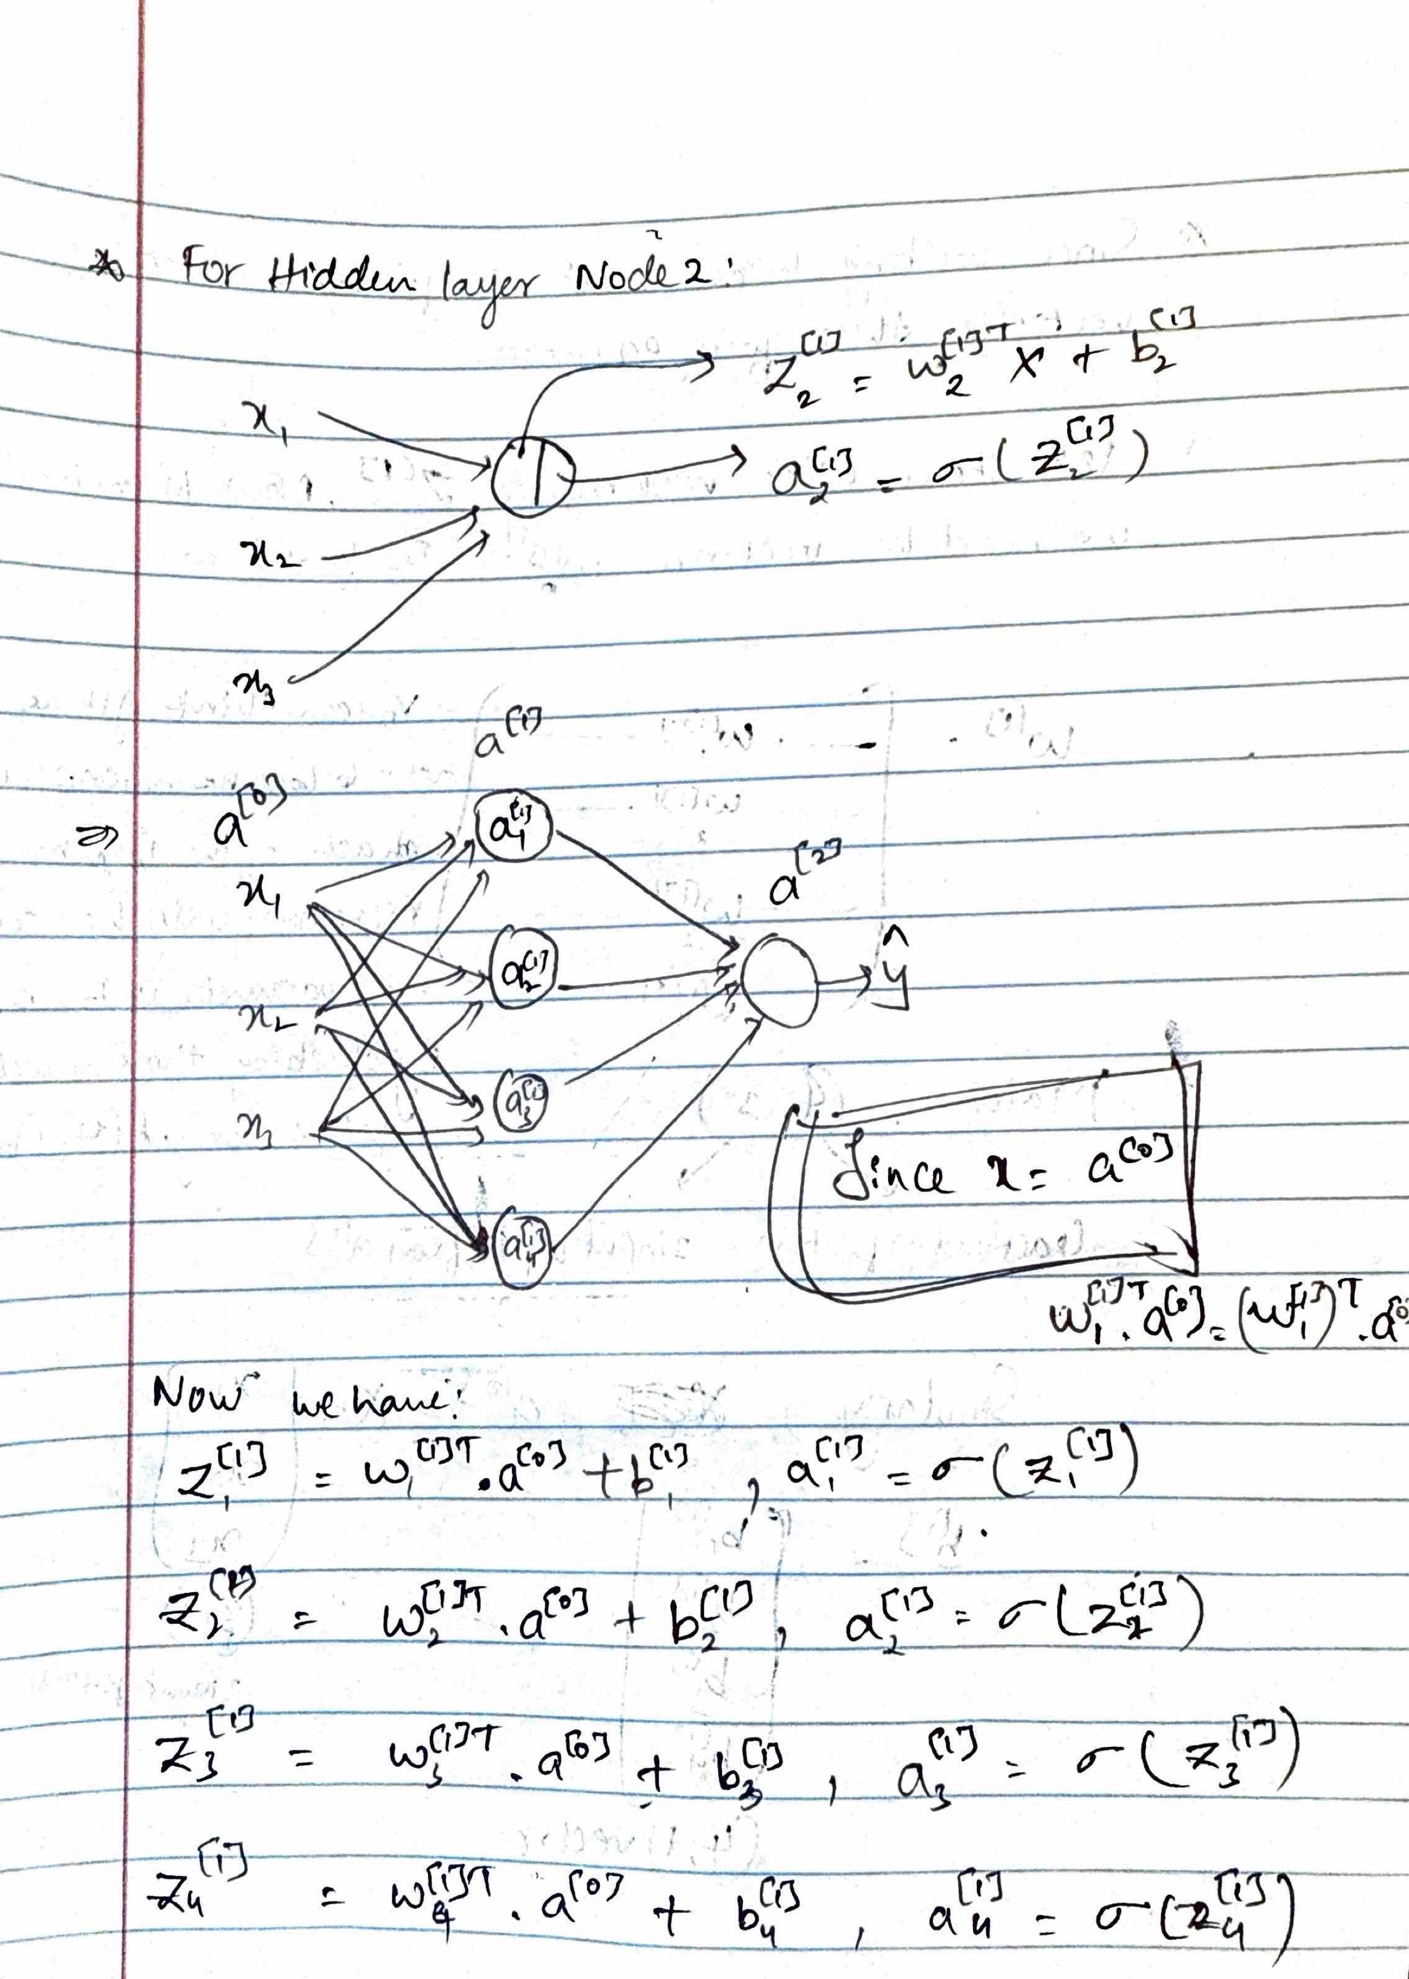 For Hidden layer Node 2:
z₂^[1] = w₂^[1]T x + b₂^[1]
x₁
a₂^[1] = σ(z₂^[1])
x₂
x₃
a^[1]
⇒ a^[0]
a₁^[1]
a^[2]
x₁
a₂^[1]
ŷ
x₂
a₃^[1]
x₃
Since x = a^[0]
a₄^[1]
w₁^[1]T . a^[0] = (w₁^[1])^T . a^[0]
Now we have:
z₁^[1] = w₁^[1]T . a^[0] + b₁^[1] , a₁^[1] = σ(z₁^[1])
z₂^[1] = w₂^[1]T . a^[0] + b₂^[1] , a₂^[1] = σ(z₂^[1])
z₃^[1] = w₃^[1]T . a^[0] + b₃^[1] , a₃^[1] = σ(z₃^[1])
z₄^[1] = w₄^[1]T . a^[0] + b₄^[1] , a₄^[1] = σ(z₄^[1])